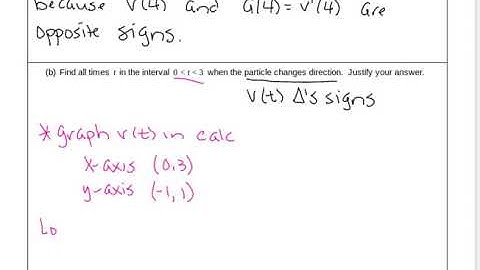 because v(4) and a(4) = v'(4) are
opposite signs.
(b) Find all times t in the interval 0 < t < 3 when the particle changes direction. Justify your answer.
v(t) Δ's signs
* graph v(t) in calc
x-axis (0,3)
y-axis (-1,1)
Lo